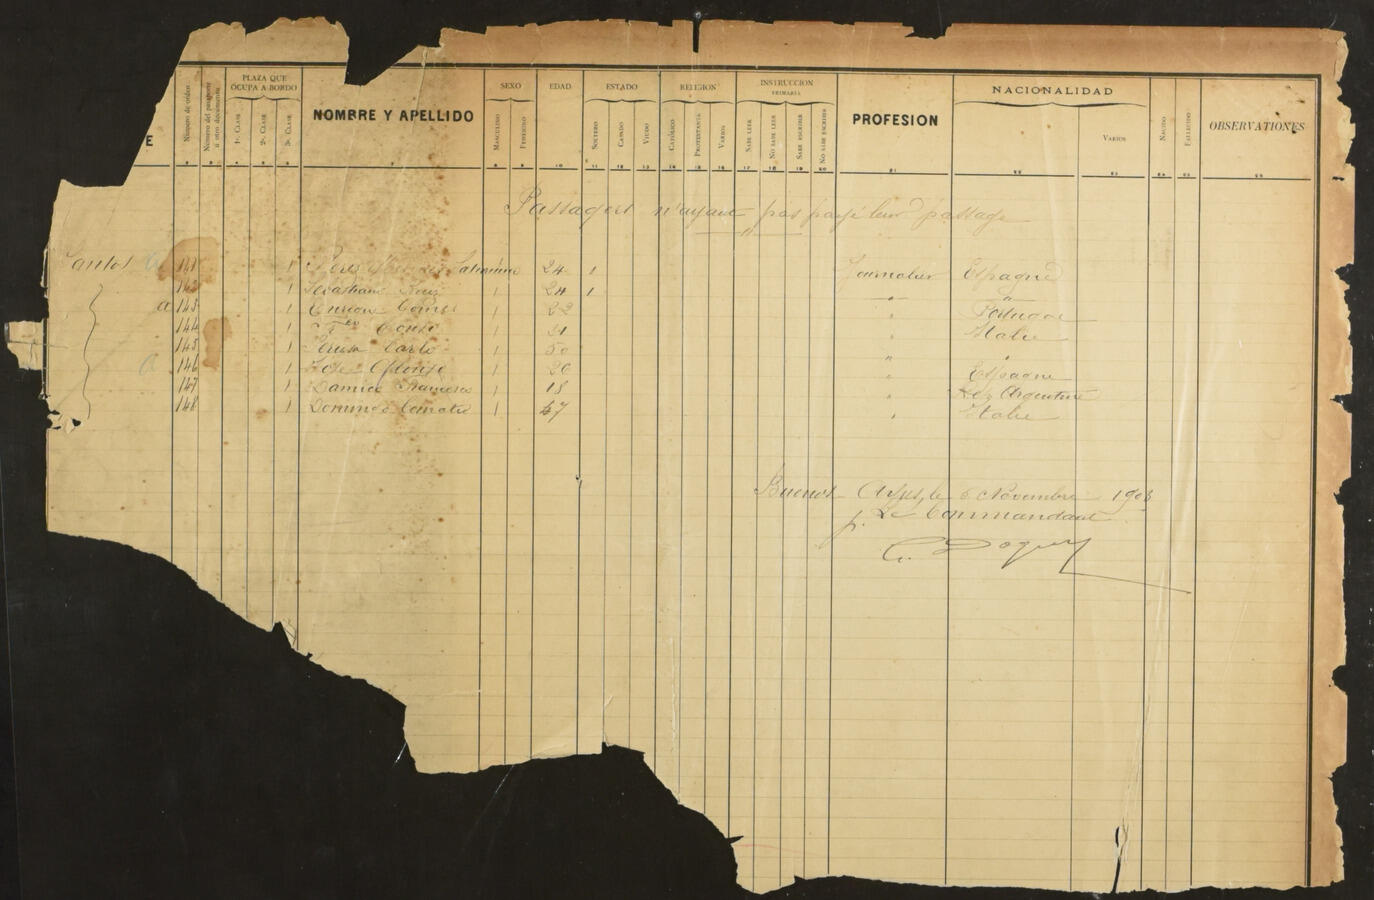 E
Número de orden
Número del pasaporte ú otro documento
PLAZA QUE OCUPA A BORDO
1ª CLASE
2ª CLASE
3ª CLASE
NOMBRE Y APELLIDO
SEXO
MASCULINO
FEMENINO
EDAD
ESTADO
SOLTERO
CASADO
VIUDO
RELIGION
CATÓLICO
PROTESTANTE
VARIOS
INSTRUCCION PRIMARIA
SABE LEER
NO SABE LEER
SABE ESCRIBIR
NO SABE ESCRIBIR
PROFESION
NACIONALIDAD
VARIOS
NACIDO
FALLECIDO
OBSERVATIONES
Passagers n'ayant pas payé leur passage
Santos 141 1 Peres Saturnino 1 24 1 Journalier Espagne
142 1 Sebastiano Ruiz 1 24 1 " "
a 143 1 Enrique Gomes 1 22 " Portugal
144 1 1 21 " Italie
145 1 Carlo 1 50 " "
a 146 1 José Alonso 1 26 " Espagne
147 1 Damico Francesco 1 18 " Rép Argentine
148 1 Domingo 1 47 " Italie
Buenos Ayres, le 6 Novembre 1908
p. Le Commandant